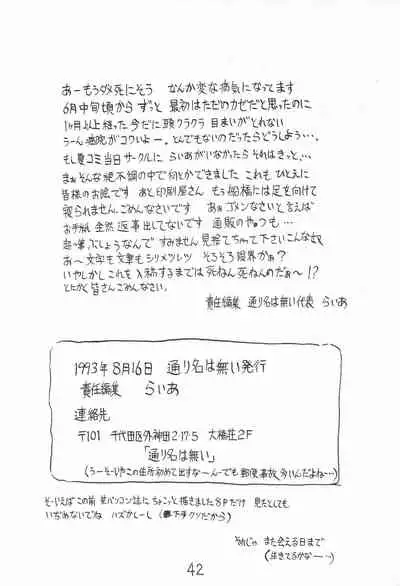 あーもうダメ死にそう なんか変な病気になってます
6月中旬頃からずっと 最初はただのカゼだと思ったのに
1ヶ月以上経った今だに頭クラクラ 目まいがとれない
うーん病院がコワいよー、とんでもないのだったらどうしよう…、
もし夏コミ当日サークルに らいあがいなかったら それはきっと…、
まぁそんな絶不調の中で何とかできました これも ひとえに
皆様のお陰です あと印刷屋さん もう船橋には足を向けて
寝られません。ごめんなさいです あぁゴメンなさいと言えば
お手紙 全然 返事出してないです 通販のやつも…
超筆ぶしょうなんで すみません 見捨てちゃって下さいこんな奴
あ〜文字も文章もシリメツレツ そろそろ限界かぁ?
いやしかしこれを入稿するまでは死ねん死ねんのだぁ〜!?
とにかく皆さんごめんなさい。
責任編集 通り名は無い代表 らいあ
1993年8月16日 通り名は無い発行
責任編集 らいあ
連絡先
〒101 千代田区外神田2-17-5 大橋荘2F
「通り名は無い」
(うーそういやこの住所初めて出すなーんーでも郵便事故多いんだよね…)
そーいえばこの前 某パソコン誌にちょこっと描きました8Pだけ 見たとしても
いぢめないでね ハズかしーし(下手クソだから)
それじゃ また会える日まで
(生きてるかなー…)
42